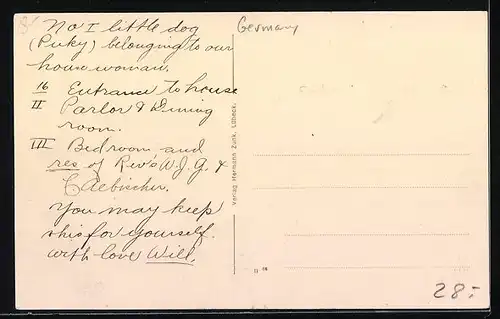 No I little dog
(Puky) belonging to our
housewoman.
16 Entrance to house
II Parlor & Dining
room.
III Bedroom and
res. of Rev's W. J. G. &
C Aebischer.
You may keep
this for yourself.
with love Will.
Germany
Verlag Hermann Zunk, Lübeck.
28.-